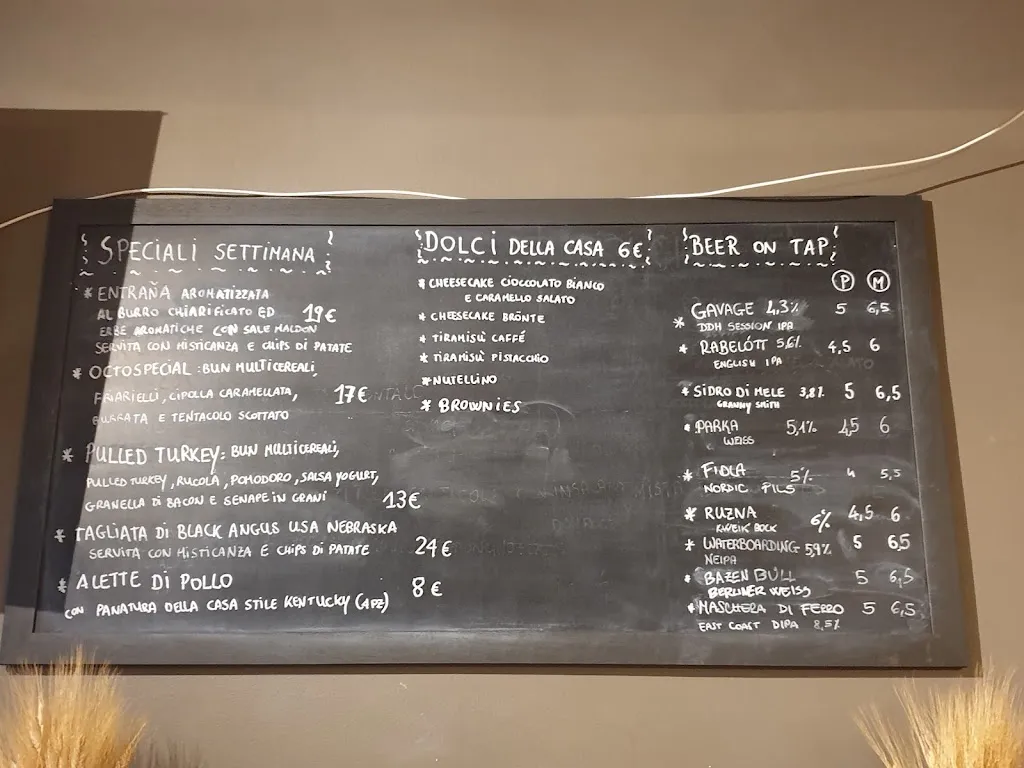 SPECIALI SETTIMANA
* ENTRAÑA AROMATIZZATA
AL BURRO CHIARIFICATO ED 19€
ERBE AROMATICHE CON SALE MALDON
SERVITA CON MISTICANZA E CHIPS DI PATATE
* OCTOSPECIAL: BUN MULTICEREALI,
FRIARIELLI, CIPOLLA CARAMELLATA, 17€
BURRATA E TENTACOLO SCOTTATO
* PULLED TURKEY: BUN MULTICEREALI,
PULLED TURKEY, RUCOLA, POMODORO, SALSA YOGURT,
GRANELLA DI BACON E SENAPE IN GRANI 13€
* TAGLIATA DI BLACK ANGUS USA NEBRASKA
SERVITA CON MISTICANZA E CHIPS DI PATATE 24€
* ALETTE DI POLLO 8€
CON PANATURA DELLA CASA STILE KENTUCKY
DOLCI DELLA CASA 6€
* CHEESECAKE CIOCCOLATO BIANCO
E CARAMELLO SALATO
* CHEESECAKE BRÖNTE
* TIRAMISÙ CAFFÉ
* TIRAMISÙ PISTACCHIO
* NUTELLINO
* BROWNIES
BEER ON TAP
P M
* GAVAGE 4,3% 5 6,5
DDH SESSION IPA
* RABELÓTT 5,6% 4,5 6
ENGLISH IPA
* SIDRO DI MELE 3,8% 5 6,5
GRANNY SMITH
* PARKA 5,1% 4,5 6
WEISS
* FIOLA 5% 4 5,5
NORDIC PILS
* RUZNA 6% 4,5 6
KWEIK BOCK
* WATERBOARDING 5,9% 5 6,5
NEIPA
* BAZEN BULL 5 6,5
BERLINER WEISS
* MASCHERA DI FERRO 5 6,5
EAST COAST DIPA 8,5%